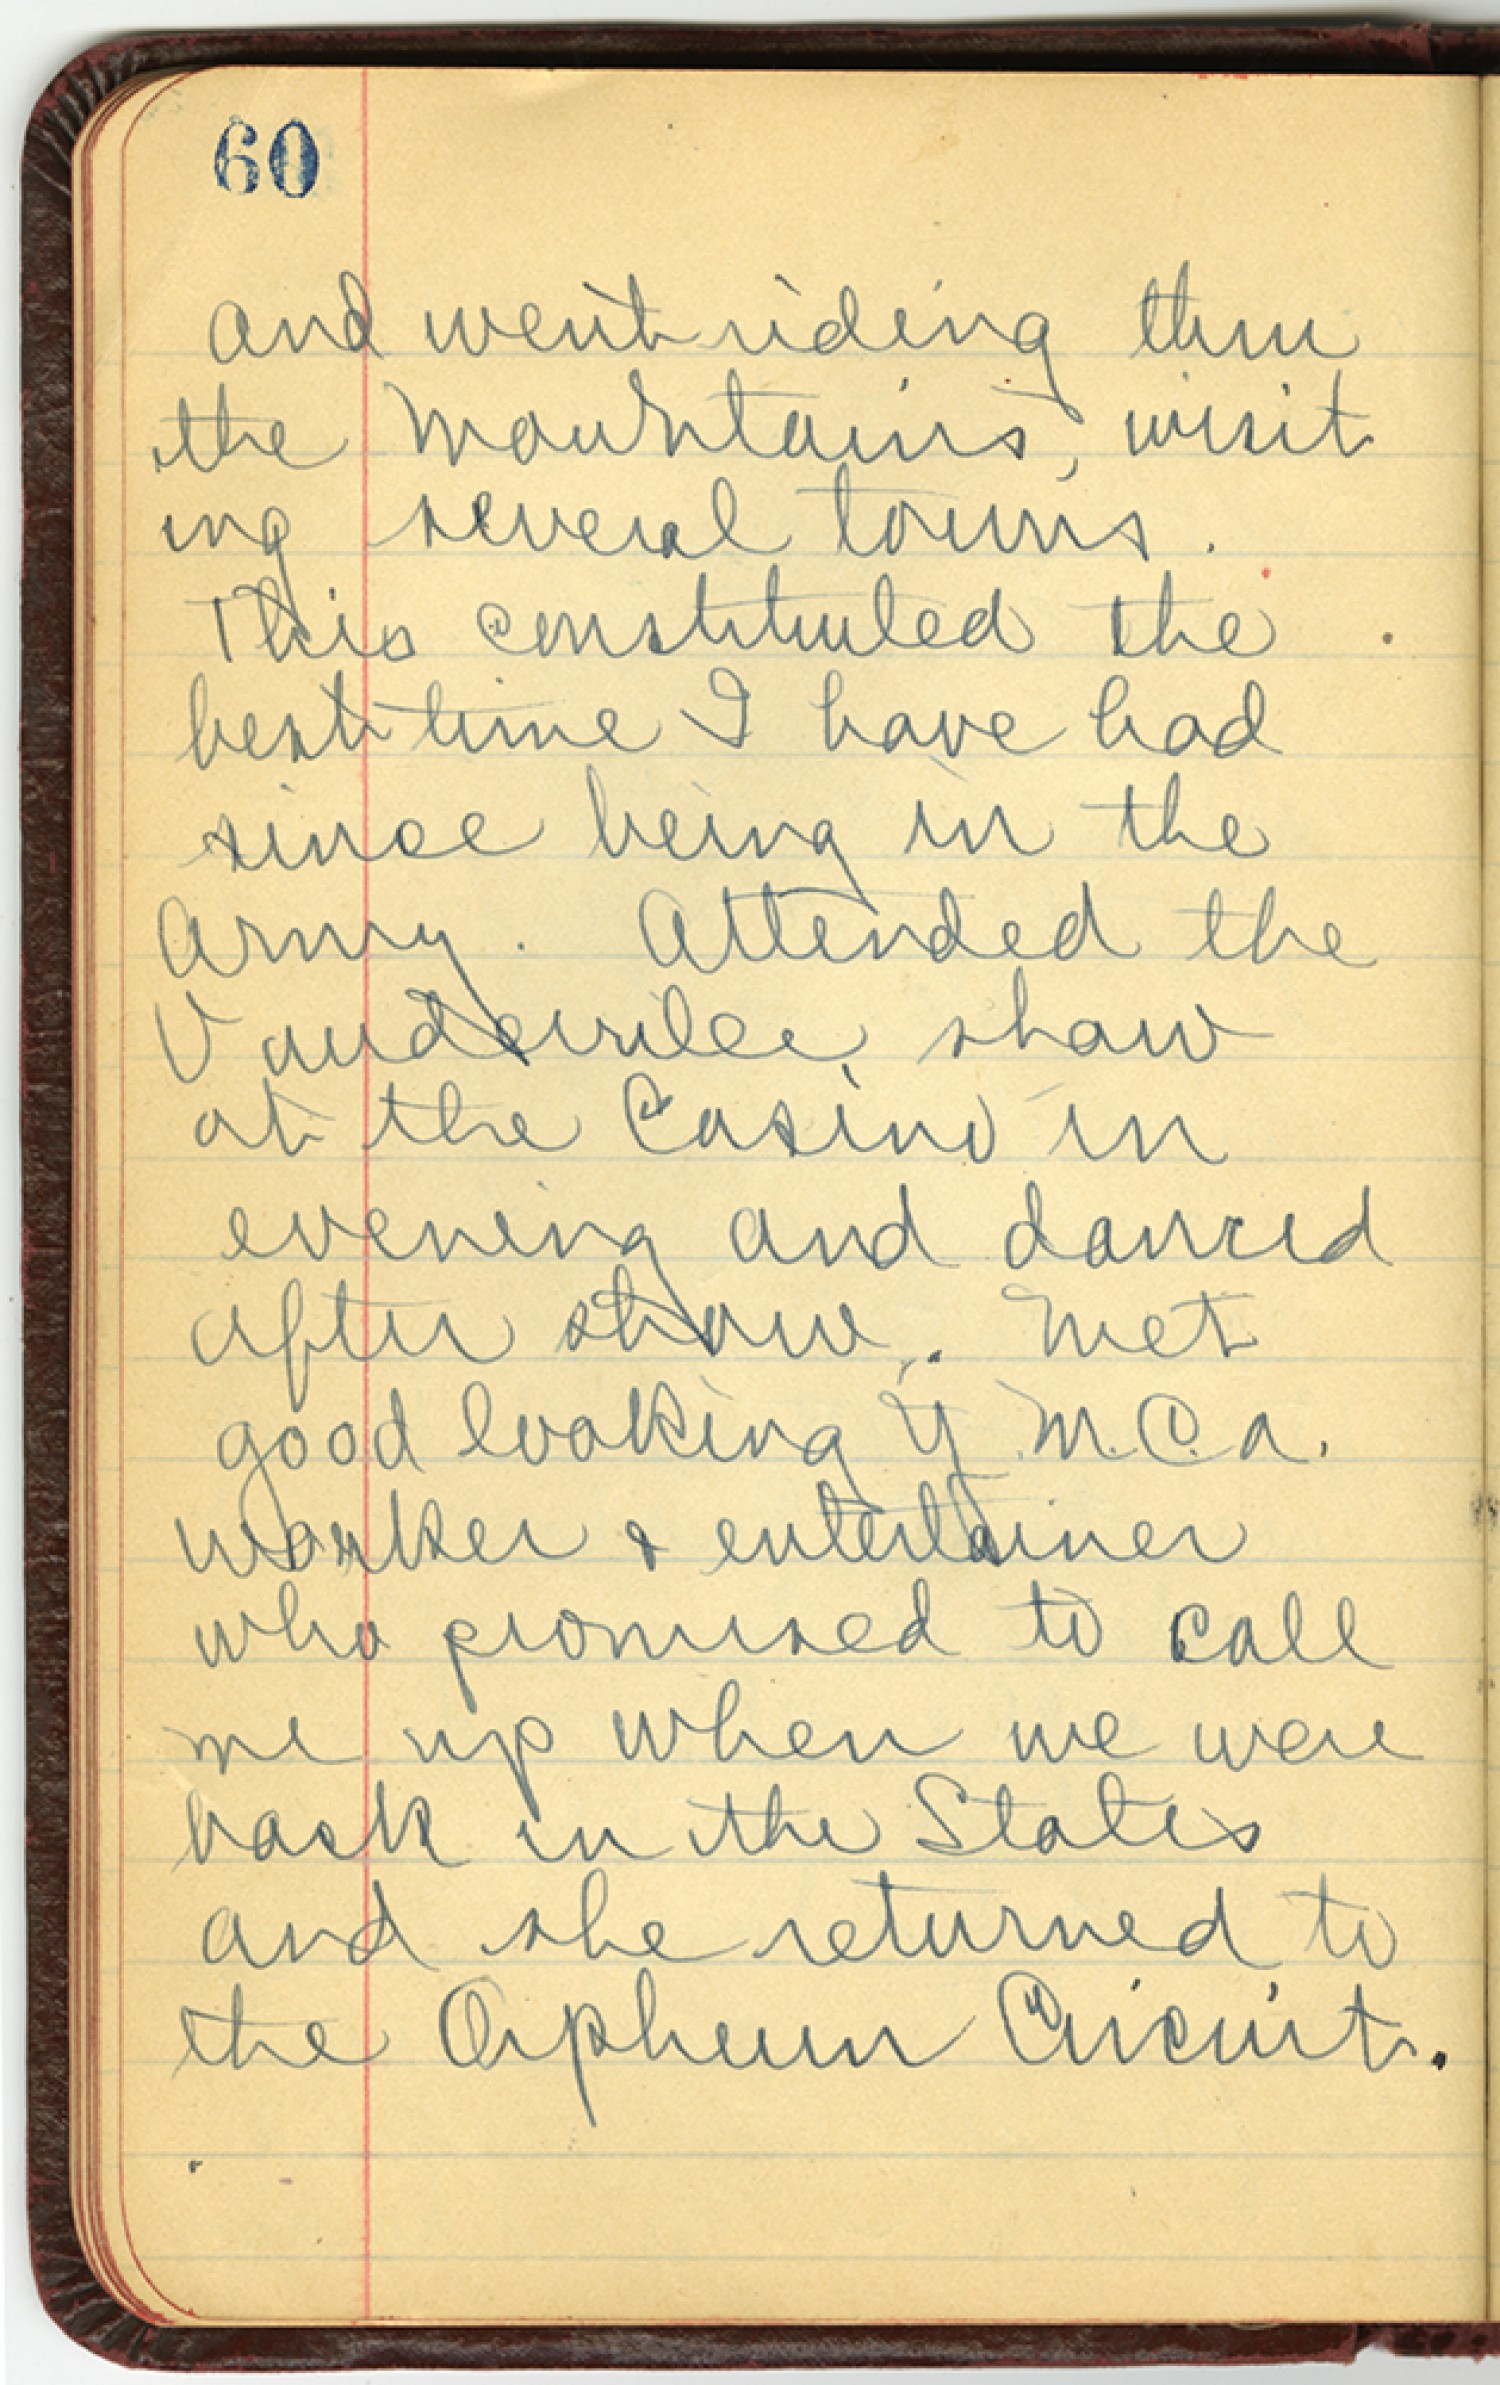 60
and went riding thru
the Mountains, visit
ing several towns.
This constituted the
best time I have had
since being in the
Army. Attended the
Vaudevilee show
at the Casino in
evening and danced
after show. Met
good looking Y.M.C.A.
worker & entertainer
who promised to call
me up when we were
back in the States
and she returned to
the Orpheum Circuit.